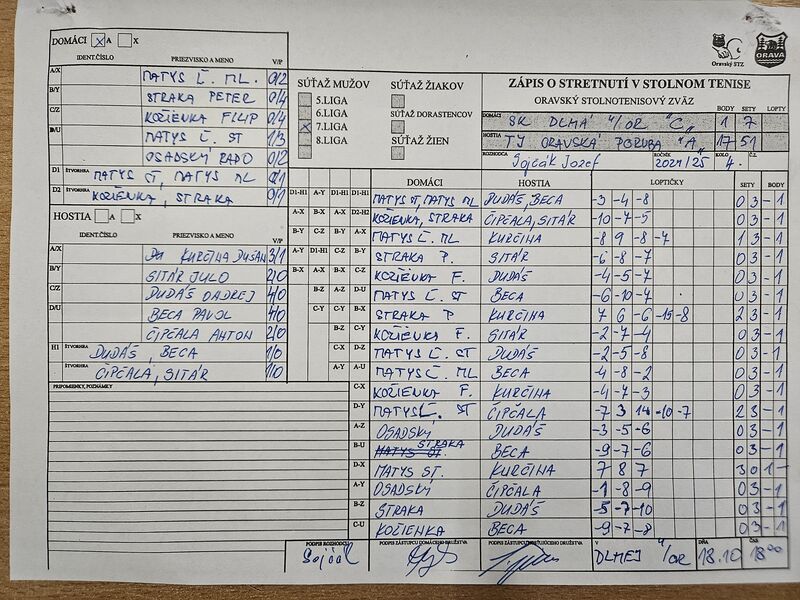 DOMÁCI X A X
IDENT.ČÍSLO PRIEZVISKO A MENO V/P
A/X MATYS Ľ. ML. 0/2
B/Y STRAKA PETER 0/4
C/Z KOZIENKA FILIP 0/4
D/U MATYS Ľ. ST 1/3
OSADSKÝ RADO 0/2
D1 ŠTVORHRA MATYS ST, MATYS ML 0/1
D2 ŠTVORHRA KOZIENKA, STRAKA 0/1
HOSTIA A X
IDENT.ČÍSLO PRIEZVISKO A MENO V/P
A/X KURČINA DUŠAN 3/1
B/Y SITÁR JULO 2/0
C/Z DUDÁŠ ONDREJ 4/0
D/U BECA PAVOL 4/0
ČIPČALA ANTON 2/0
H1 ŠTVORHRA DUDÁŠ, BECA 1/0
ŠTVORHRA ČIPČALA, SITÁR 1/0
PRIPOMIENKY, POZNÁMKY
SÚŤAŽ MUŽOV
5.LIGA
6.LIGA
X 7.LIGA
8.LIGA
SÚŤAŽ ŽIAKOV
SÚŤAŽ DORASTENCOV
SÚŤAŽ ŽIEN
Oravský STZ
ORAVA
ZÁPIS O STRETNUTÍ V STOLNOM TENISE
ORAVSKÝ STOLNOTENISOVÝ ZVÄZ
BODY SETY LOPTY
DOMÁCI ŠK DLHÁ N/OR "C" 1 7
HOSTIA TJ ORAVSKÁ PORUBA "A" 17 51
ROZHODCA Sojčák Jozef ROČNÍK 2024/25 KOLO 4. Č.Z.
DOMÁCI HOSTIA LOPTIČKY SETY BODY
D1-H1 A-Y D1-H1 D1-H1 MATYS ST, MATYS ML DUDÁŠ, BECA -3 -4 -8 0 3 - 1
A-X B-X A-X D2-H2 KOZIENKA, STRAKA ČIPČALA, SITÁR -10 -7 -5 0 3 - 1
B-Y C-Z B-Y A-X MATYS Ľ. ML KURČINA -8 9 -8 -7 1 3 - 1
A-Y D1-H1 C-Z B-Y STRAKA P. SITÁR -6 -8 -7 0 3 - 1
B-X A-X B-X C-Z KOZIENKA F. DUDÁŠ -4 -5 -7 0 3 - 1
B-Z A-Z D-U MATYS Ľ. ST BECA -6 -10 -7 0 3 - 1
C-Y C-Y B-X STRAKA P KURČINA 7 6 -6 -15 -8 2 3 - 1
B-Z C-Y KOZIENKA F. SITÁR -2 -7 -4 0 3 - 1
C-X D-Z MATYS Ľ. ST DUDÁŠ -2 -5 -8 0 3 - 1
A-Y A-U MATYS Ľ. ML BECA -4 -8 -2 0 3 - 1
C-X KOZIENKA F. KURČINA -4 -7 -3 0 3 - 1
D-Y MATYS Ľ. ST ČIPČALA -7 3 14 -10 -7 2 3 - 1
A-Z OSADSKÝ DUDÁŠ -3 -5 -6 0 3 - 1
B-U STRAKA BECA -9 -7 -6 0 3 - 1
D-X MATYS ST. KURČINA 7 8 7 3 0 1 -
A-Y OSADSKÝ ČIPČALA -1 -8 -9 0 3 - 1
B-Z STRAKA DUDÁŠ -5 -7 -10 0 3 - 1
C-U KOZIENKA BECA -9 -7 -8 0 3 - 1
PODPIS ROZHODCU PODPIS ZÁSTUPCU DOMÁCEHO DRUŽSTVA PODPIS ZÁSTUPCU HOSŤUJÚCEHO DRUŽSTVA V DLHEJ N/OR DŇA 18.10 ČAS 18:00
Sojčák